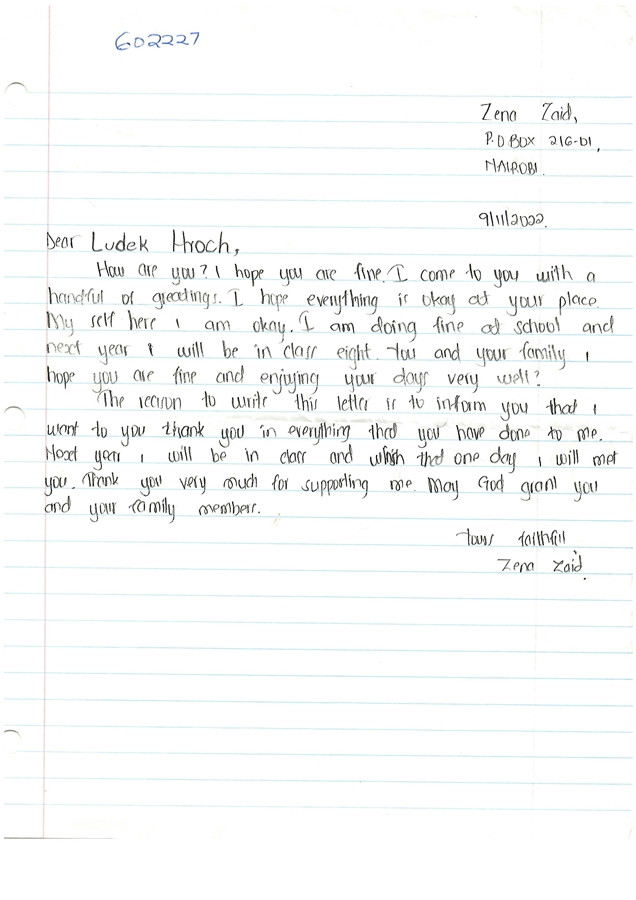 602227
Zena Zaid,
P.O BOX 216-01,
NAIROBI.
9/11/2022.
Dear Ludek Hroch,
How are you? I hope you are fine. I come to you with a
handful of greetings. I hope everything is okay at your place.
My self here I am okay. I am doing fine at school and
next year I will be in class eight. You and your family I
hope you are fine and enjoying your days very well?
The reason to write this letter is to inform you that I
want to you thank you in everything that you have done to me.
Next year I will be in class and whish that one day I will met
you. Thank you very much for supporting me. May God grant you
and your family members.
Yours faithfill
Zena Zaid.